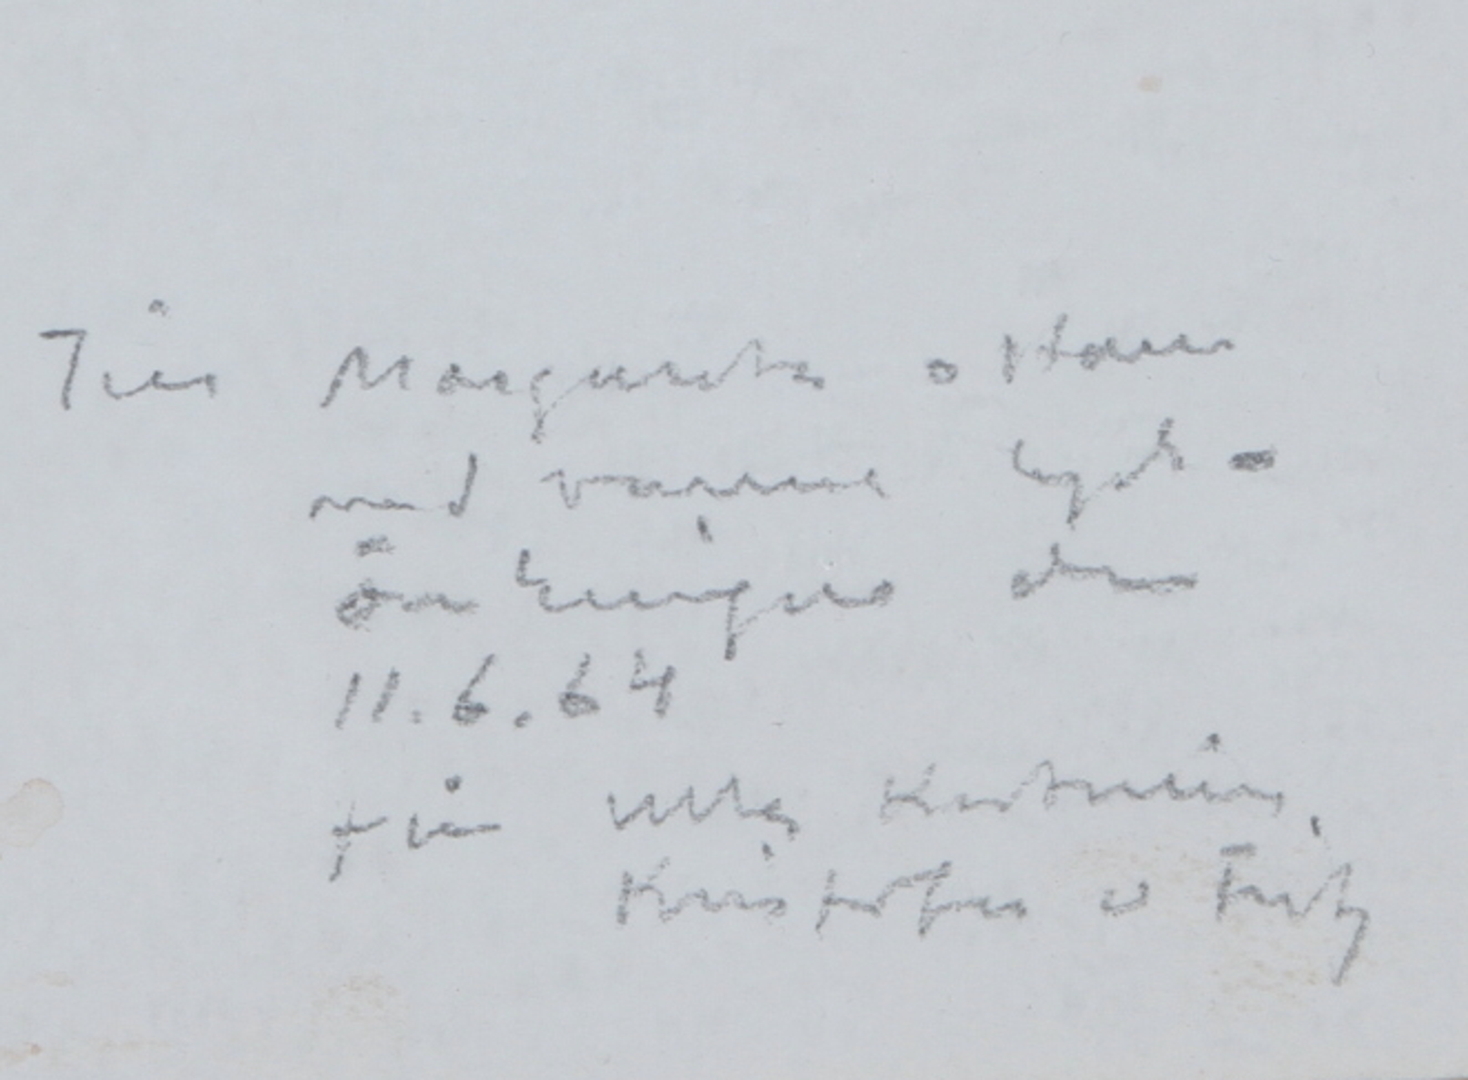 Till Margareta o Hans
med varma lyck-
önskningar den
11.6.64
från Ulla, Katarina,
Kristofer o Fritz